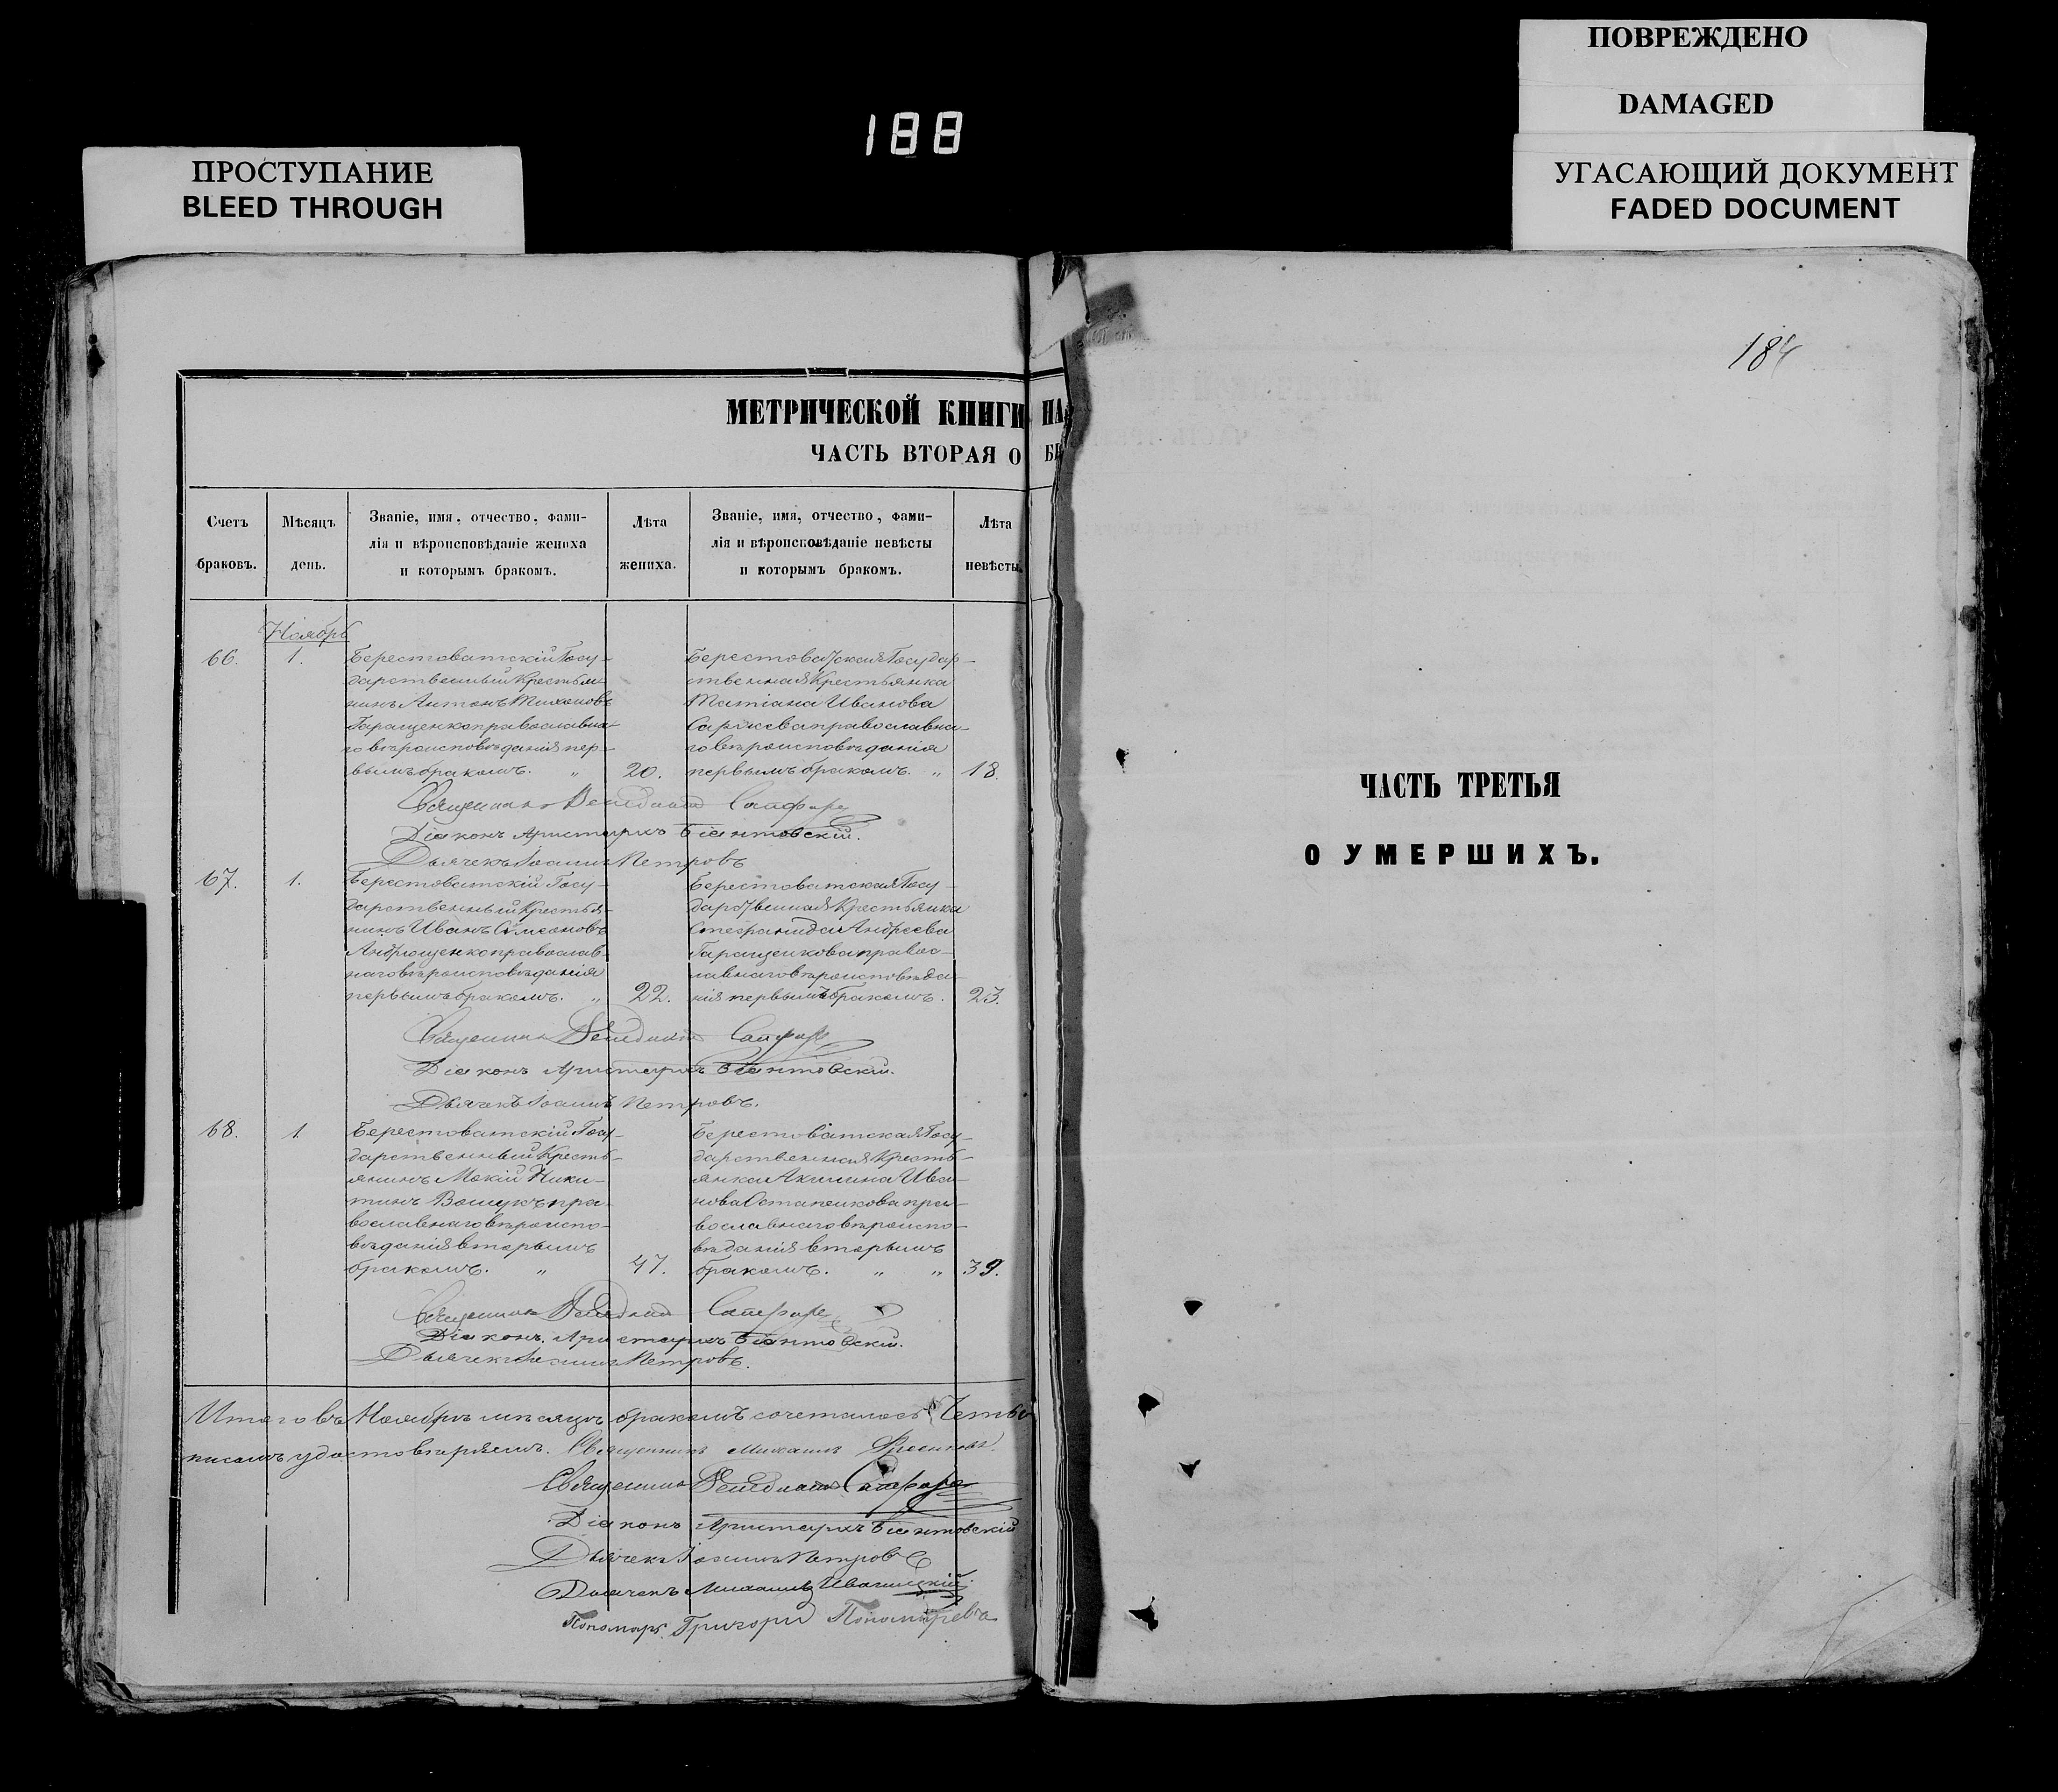 ПОВРЕЖДЕНО
DAMAGED
188
ПРОСТУПАНИЕ
BLEED THROUGH
УГАСАЮЩИЙ ДОКУМЕНТ
FADED DOCUMENT
МЕТРИЧЕСКОЙ КНИГИ НА
ЧАСТЬ ВТОРАЯ О БР
Счетъ браковъ.
Мѣсяцъ день.
Званіе, имя, отчество, фами-
лія и вѣроисповѣданіе жениха
и которымъ бракомъ.
Лѣта жениха.
Званіе, имя, отчество, фами-
лія и вѣроисповѣданіе невѣсты
и которымъ бракомъ.
Лѣта невѣсты.
Ноябрь
66. 1.
Берестоватскій Госу-
дарственный Крестья-
нинъ Антонъ Тихоновъ
Геращенко православна-
го вѣроисповѣданія пер-
вымъ бракомъ. „ 20.
Берестоватская Государ-
ственная Крестьянка
Татіана Иванова
православна-
го вѣроисповѣданія
первымъ бракомъ. „ 18.
Священникъ
Діаконъ Аристархъ Біантовскій.
Дьячекъ Іоаннъ Петровъ
67. 1.
Берестоватскій Госу-
дарственный Крестья-
нинъ Иванъ Сѵмеоновъ
Андрющенко православ-
наго вѣроисповѣданія
первымъ бракомъ. „ 22.
Берестоватская Госу-
дарственная Крестьянка
Стефанида Андреева
Геращенкова правос-
лавнаго вѣроисповѣда-
нія первымъ бракомъ. 23.
Священникъ
Діаконъ Аристархъ Біантовскій.
Дьячекъ Іоаннъ Петровъ.
68. 1
Берестоватскій Госу-
дарственный Кресть-
янинъ Мокій Ники-
тинъ пра-
вославнаго вѣроиспо-
вѣданія вторымъ
бракомъ. „ 47.
Берестоватская Госу-
дарственная Кресть-
янка Акилина Ива-
нова Остапенкова пра-
вославнаго вѣроиспо-
вѣданія вторымъ
бракомъ. „ „ 39.
Священникъ
Діаконъ. Аристархъ Біантовскій.
Дьячекъ Іоаннъ Петровъ.
Итого въ Ноябрѣ мѣсяцѣ бракомъ сочеталось
писомъ удостовѣряемъ. Священникъ Михаилъ
Священникъ
Діаконъ Аристархъ Біантовскій
Дьячекъ Іоаннъ Петровъ
Дьячекъ Михаилъ
Пономарь Григорій Пономаревъ
184
ЧАСТЬ ТРЕТЬЯ
О УМЕРШИХЪ.